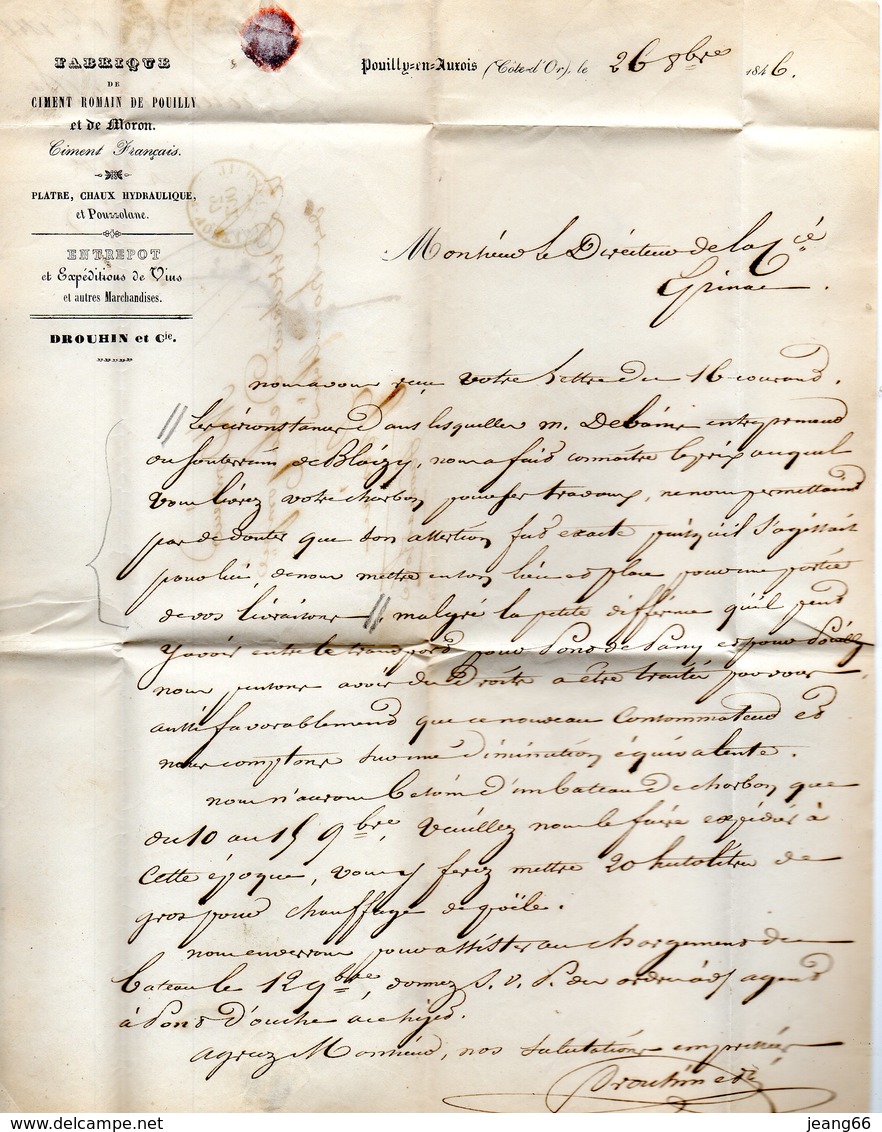 FABRIQUE
DE
CIMENT ROMAIN DE POUILLY
et de Moron.
Ciment Français.
PLATRE, CHAUX HYDRAULIQUE,
et Pouzzolane.
ENTREPOT
et Expéditions de Vins
et autres Marchandises.
DROUHIN et Cie.
Pouilly-en-Auxois (Côte-d'Or), le 26 8bre 1846.
Monsieur le Directeur de la Cié
Epinac.
nous avons reçu votre lettre du 16 courant.
// Les circonstances dans lesquelles m. Debains entrepreneur
du souterrain de Blaizy, nous a fait connaître le prix auquel
vous livrez votre charbon pour ses travaux, ne nous permettaient
pas de douter que son assertion fut exacte puisqu'il s'agissait
pour lui, de nous mettre en son lieu et place pour une portée
de vos livraisons // malgré la petite différence qu'il peut
y avoir entre le transport pour Pont de Pany et pour Pouilly
nous pensons avoir des droits a être traités par vous
aussi favorablement que ce nouveau Consommateur et
nous comptons sur une diminution équivalente.
nous n'aurons besoin d'un bateau de charbon que
du 10 au 15 9bre, veuillez nous le faire expédier à
cette époque, vous y ferez mettre 20 hectolitres de
gros pour chauffage de poële.
nous enverrons pour assister au chargement du
bateau le 12 9bre, donnez S. V. P. des ordres à agent
à Pont d'ouche
agréez Monsieur, nos salutations empressées
Drouhin et Cié
jeang66